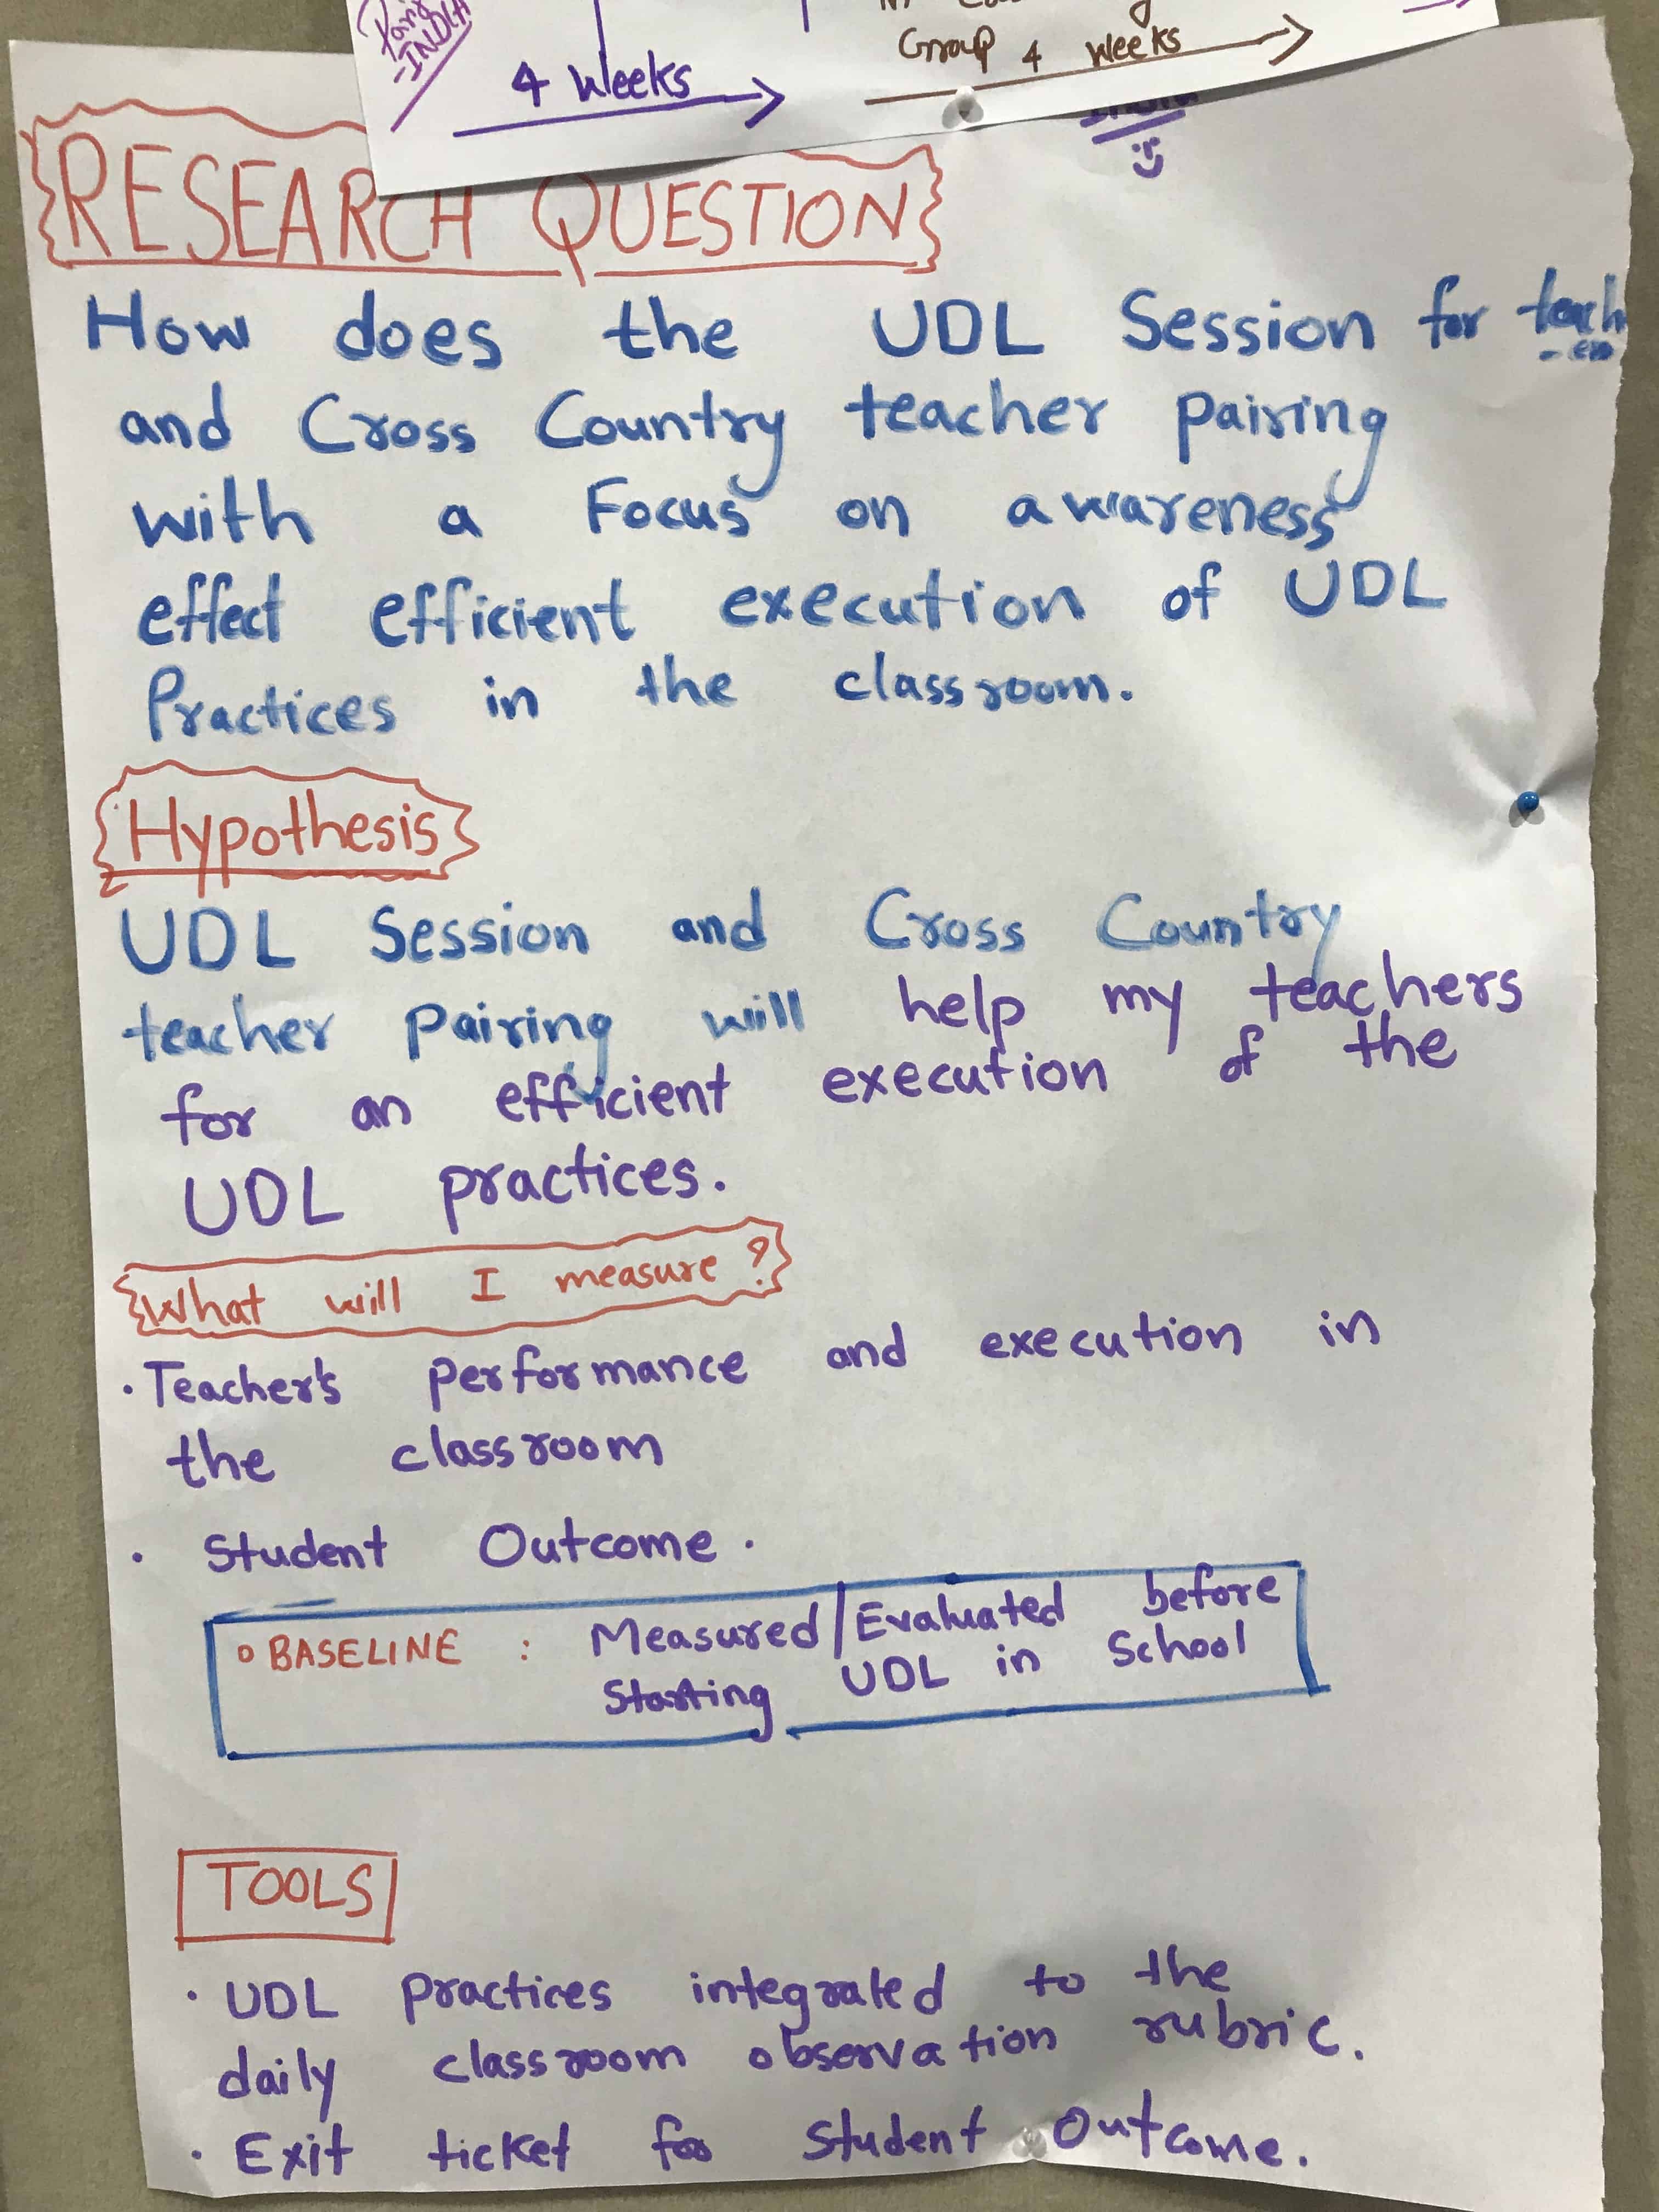 -INDIA
4 Weeks
Group 4 Weeks
RESEARCH QUESTION
How does the UDL Session for teach
-ers
and Cross Country teacher pairing
with a Focus on awareness
effect efficient execution of UDL
Practices in the classroom.
Hypothesis
UDL Session and Cross Country
teacher Pairing will help my teachers
for an efficient execution of the
UDL practices.
What will I measure?
• Teacher's performance and execution in
the classroom
• Student Outcome.
BASELINE : Measured/Evaluated before
Starting UDL in School
TOOLS
• UDL practices integrated to the
daily classroom observation rubric.
• Exit ticket for Student Outcome.